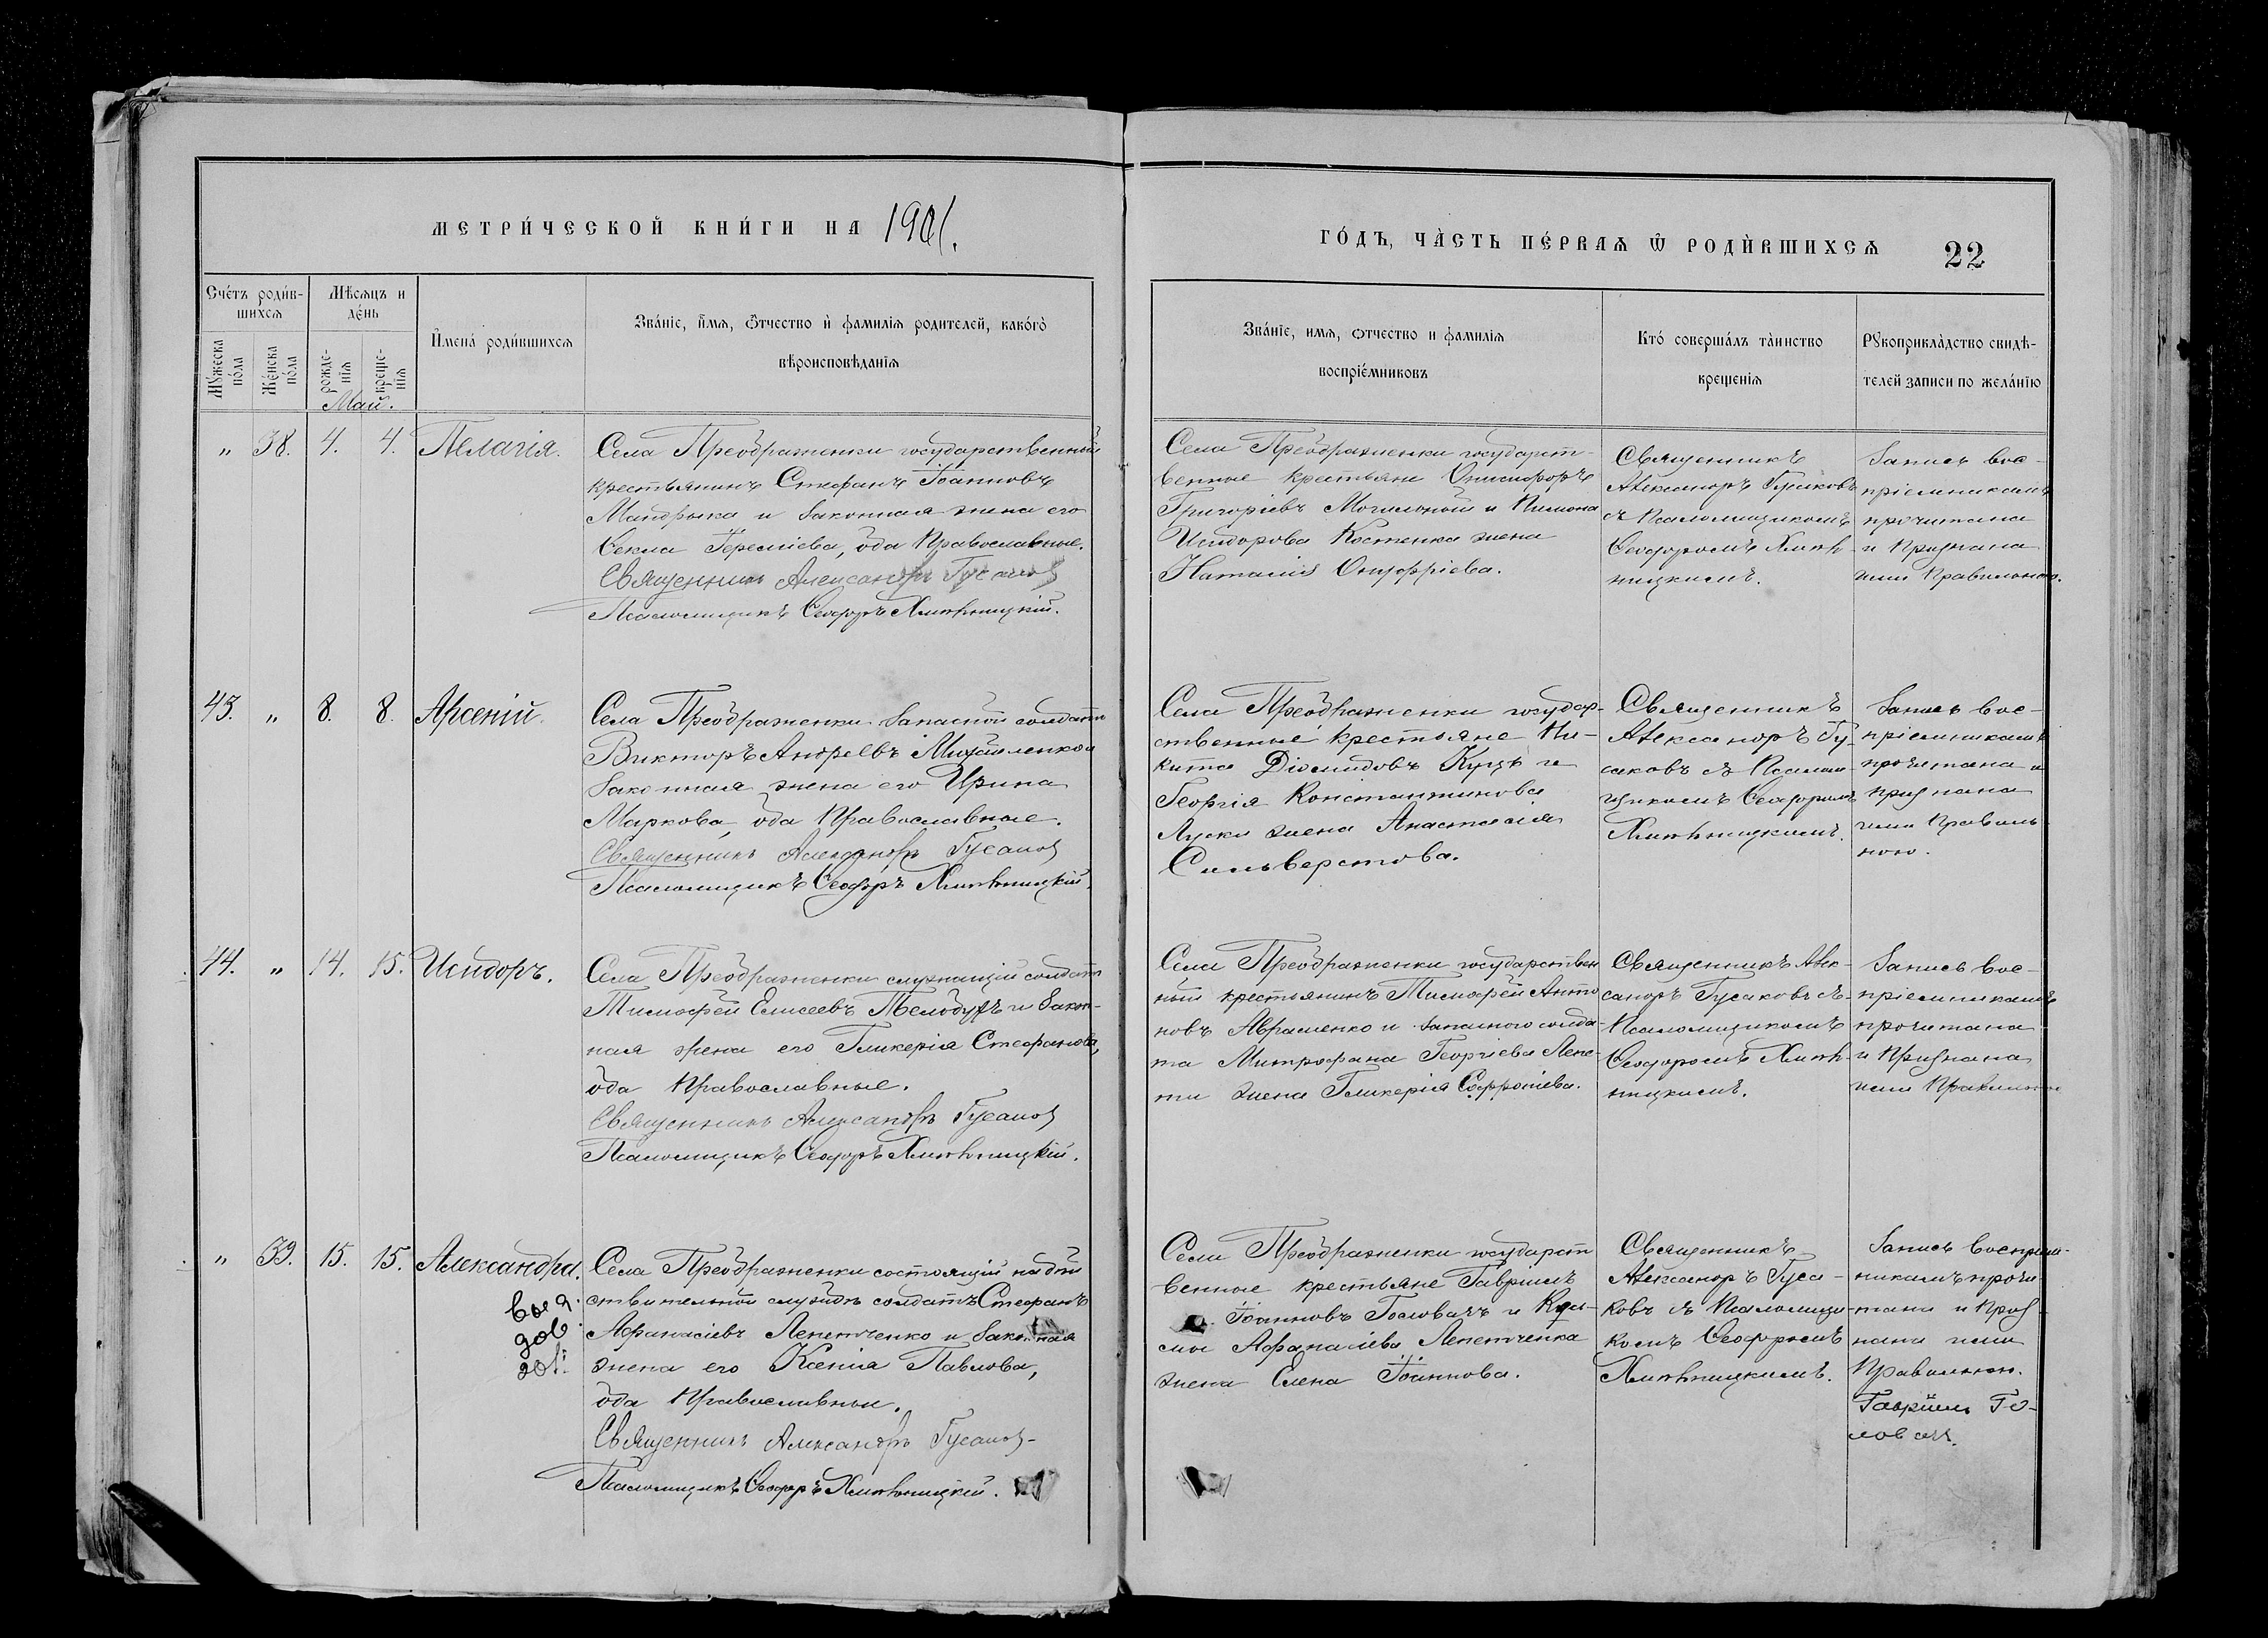 МЕТРИ́ЧЕСКОЙ КНИ́ГИ НА 1901.
ГО́ДЪ, ЧА̀СТЬ ПЕ́РВАѦ Ѿ РОДЍВШИХСѦ 22
Сче́тъ роди́в-
шихсѧ
Мѣ́сѧцъ и
де́нь
Му́жеска
по́ла
Же́нска
по́ла
рожде-
нїѧ
креще-
нїѧ
Имена̀ роди́вшихсѧ
Зва́нїе, и́мѧ, ѻ́тчество и҆ фамилїѧ родителей, како́гѡ
вѣроисповѣданїѧ
Зва́нїе, имѧ, ѻтчество и фамилїѧ
воспрїе́мниковъ
Кто́ соверша́лъ та̀инство
крещенїѧ
Рꙋкоприкла̀дство свидѣ-
телей записи по жела́нїю
Май.
„ 38. 4. 4. Пелагія.
Села Преображенки государственный
крестьянинъ Стефанъ Іоанновъ
Мандрыка и законная жена его
Ѳекла Іереміева, оба Православные.
Священникъ Александръ Гусаков
Псаломщикъ Ѳеодоръ Хмѣльницкій.
Села Преображенки государст-
венные крестьяне Онисифоръ
Григоріевъ Могильный и Пимона
Исидорова Костенка жена
Наталія Онуфріева.
Священникъ
Александръ Гусаковъ
съ Псаломщикомъ
Ѳеодоромъ Хмѣль-
ницкимъ.
Запись вос-
пріемникамъ
прочитана
и признана
ими правильною.
43. „ 8. 8. Арсеній.
Села Преображенки запасной солдатъ
Викторъ Андреевъ Михайленко и
законная жена его Ирина
Маркова, оба Православные.
Священникъ Александръ Гусаков
Псаломщикъ Ѳеодоръ Хмѣльницкій.
Села Преображенки государ-
ственные крестьяне Ни-
кита Діомидовъ Куцъ и
Георгія Константинова
жена Анастасія
Сильверстова.
Священникъ
Александръ Гу-
саковъ съ Псалом-
щикомъ Ѳеодоромъ
Хмѣльницкимъ.
Запись вос-
пріемникамъ
прочитана и
признана
ими правиль
ною.
44. „ 14. 15. Исидоръ.
Села Преображенки служащій солдатъ
Тимофей Елисеевъ и закон-
ная жена его Гликерія Стефанова,
оба Православные.
Священникъ Александръ Гусаков
Псаломщикъ Ѳеодоръ Хмѣльницкій.
Села Преображенки государствен
ный крестьянинъ Тимофей Анто
новъ Авраменко и запасного солда-
та Митрофана Георгіева Лепе-
ти жена Гликерія Софроніева.
Священникъ Алек-
сандръ Гусаковъ съ
Псаломщикомъ
Ѳеодоромъ Хмѣль-
ницкимъ.
Запись вос-
пріемникамъ
прочитана
и признана
ими правильною
„ 39. 15. 15. Александра.
Села Преображенки состоящій на дѣй
ствительной службѣ солдатъ Стефанъ
Афанасіевъ Лепетченко и законная
жена его Ксенія Павлова,
оба Православные.
Священникъ Александръ Гусаков
Псаломщикъ Ѳеодоръ Хмѣльницкій.
Села Преображенки государст
венные крестьяне Гавріилъ
Іоанновъ Головачъ и Кузь-
мы Афанасіева Лепетченка
жена Елена Іоаннова.
Священникъ
Александръ Гуса-
ковъ съ Псаломщи
комъ Ѳеодоромъ
Хмѣльницкимъ.
Запись воспріем-
никамъ прочи
тана и приз
нана ими
Правильною.
Гавріилъ Го-
ловач.